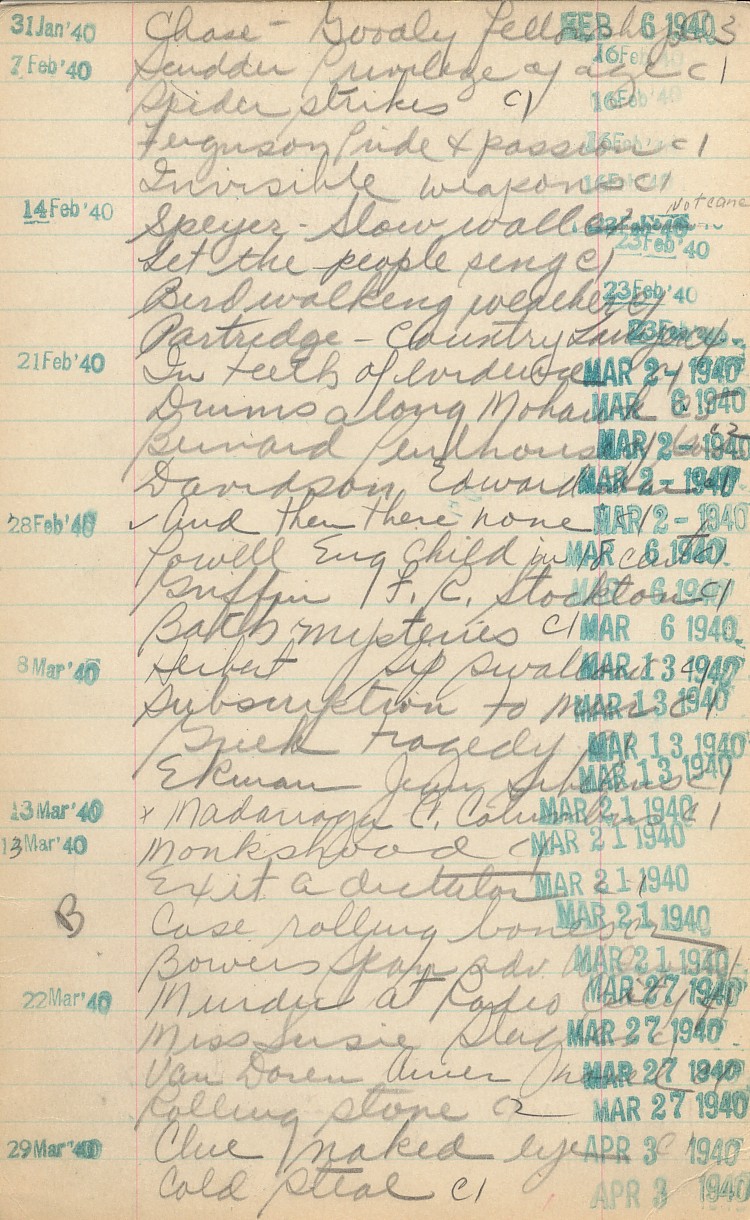 31 Jan '40 Chase - Goodly Fellowship C3 FEB 6 1940
7 Feb '40 Scudder Privilege of age C1 16 Feb
Spider strikes C1 16 Feb '40
Ferguson Pride & passion C1 16 Feb '40
Invisible weapons C1
Not cane
14 Feb '40 Speyer - Slow wall C1
Let the people sing C1 23 Feb '40
Bird walking weather C1 23 Feb '40
Partridge - Country Lawyer 23 Feb
21 Feb '40 In teeth of evidence MAR 2 - 1940
Drums along Mohawk MAR 6 1940
Penthouse C2 MAR 2 - 1940
Davidson Edward C1 MAR 2 - 1940
28 Feb '40 ✓ And then there none C1 MAR 2 - 1940
Powell Eng Child in 18 cent C1 MAR 6 1940
Griffin F. C. Stockton C1 MAR 6 1940
Baths mysteries C1 MAR 6 1940
8 Mar '40 Herbert Sip Swallow C1 MAR 13 1940
Subscription to C1 MAR 13 1940
Greek tragedy C1 MAR 13 1940
Ekman C1 MAR 13 1940
13 Mar '40 x Madariaga C. Columbus C1 MAR 21 1940
13 Mar '40 Monkshood C1 MAR 21 1940
Exit a dictator C1 MAR 21 1940
B Case rolling bones C2 MAR 21 1940
Bowers Span adv MAR 21 1940
22 Mar '40 Murder at Radio City C1 MAR 27 1940
Miss Susie Slagle C1 MAR 27 1940
Van Doren Amer MAR 27 1940
Rolling stone C2 MAR 27 1940
29 Mar '40 Clue naked eye C1 APR 3 1940
Cold steal C1 APR 3 1940